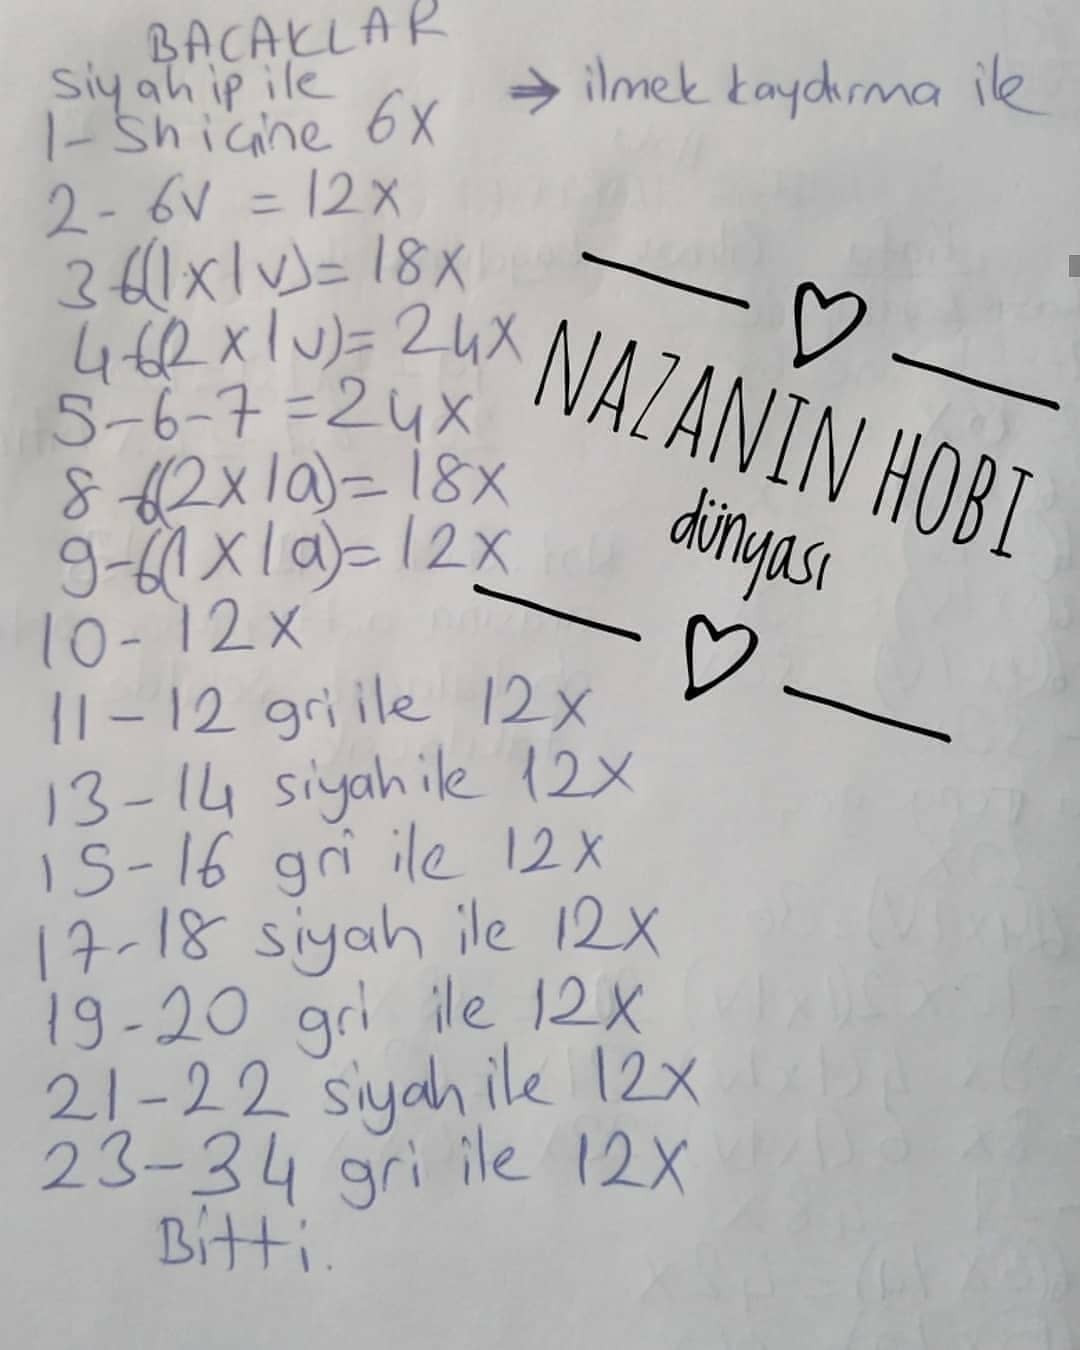 BACAKLAR
Siyah ip ile
⇒ ilmek kaydırma ile
1- Sh içine 6X
2- 6V = 12X
3-6(1X1V)= 18X
4-6(2X1V)= 24X
5-6-7 =24X
8-6(2X1a)= 18X
9-6(1X1a)= 12X
10- 12X
11-12 gri ile 12X
13-14 siyah ile 12X
15-16 gri ile 12X
17-18 siyah ile 12X
19-20 gri ile 12X
21-22 siyah ile 12X
23-34 gri ile 12X
Bitti.
NAZANIN HOBI
dünyası